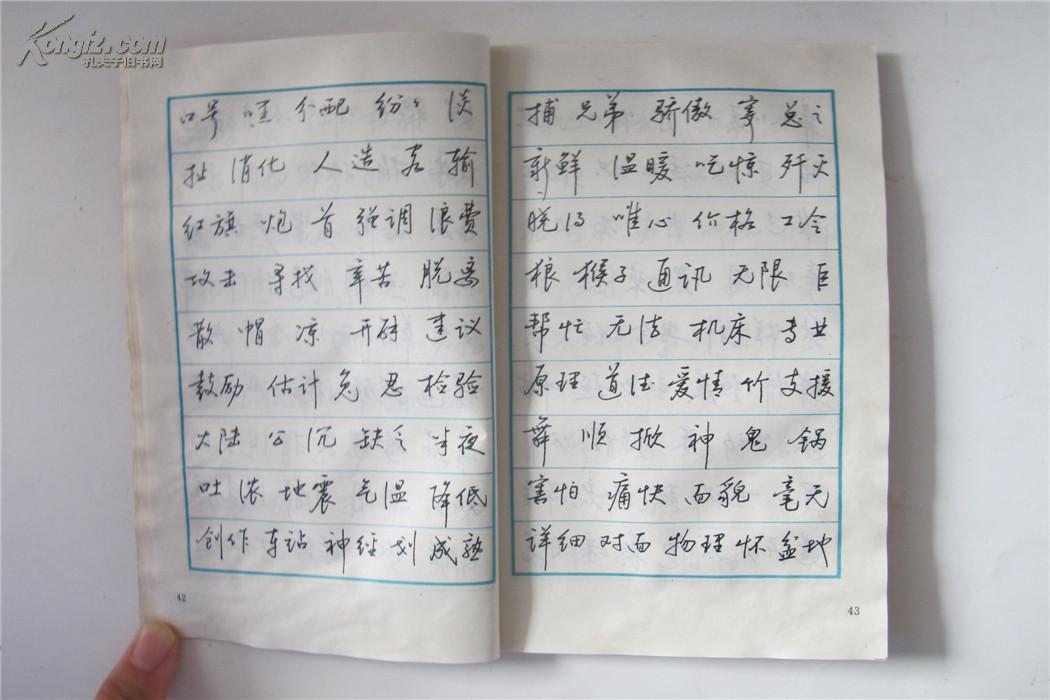 Kongfz.com
孔夫子旧书网
口号 哇 分配 纷纷 谈
扯 消化 人造 客 输
红旗 炮 首 强调 浪费
攻击 寻找 辛苦 脱离
散 帽 凉 开辟 建议
鼓励 估计 兔 忍 检验
大陆 公 沉 缺乏 半夜
吐 浓 地震 气温 降低
创作 车站 神经 划 成熟
42
捕 兄弟 骄傲 寡 总之
新鲜 温暖 吃惊 歼灭
晓得 唯心 价格 口令
狼 猴子 通讯 无限 巨
帮忙 无法 机床 专业
原理 道德 爱情 竹 支援
舞 顺 掀 神 鬼 锅
害怕 痛快 面貌 毫无
详细 对面 物理 怀 盆地
43